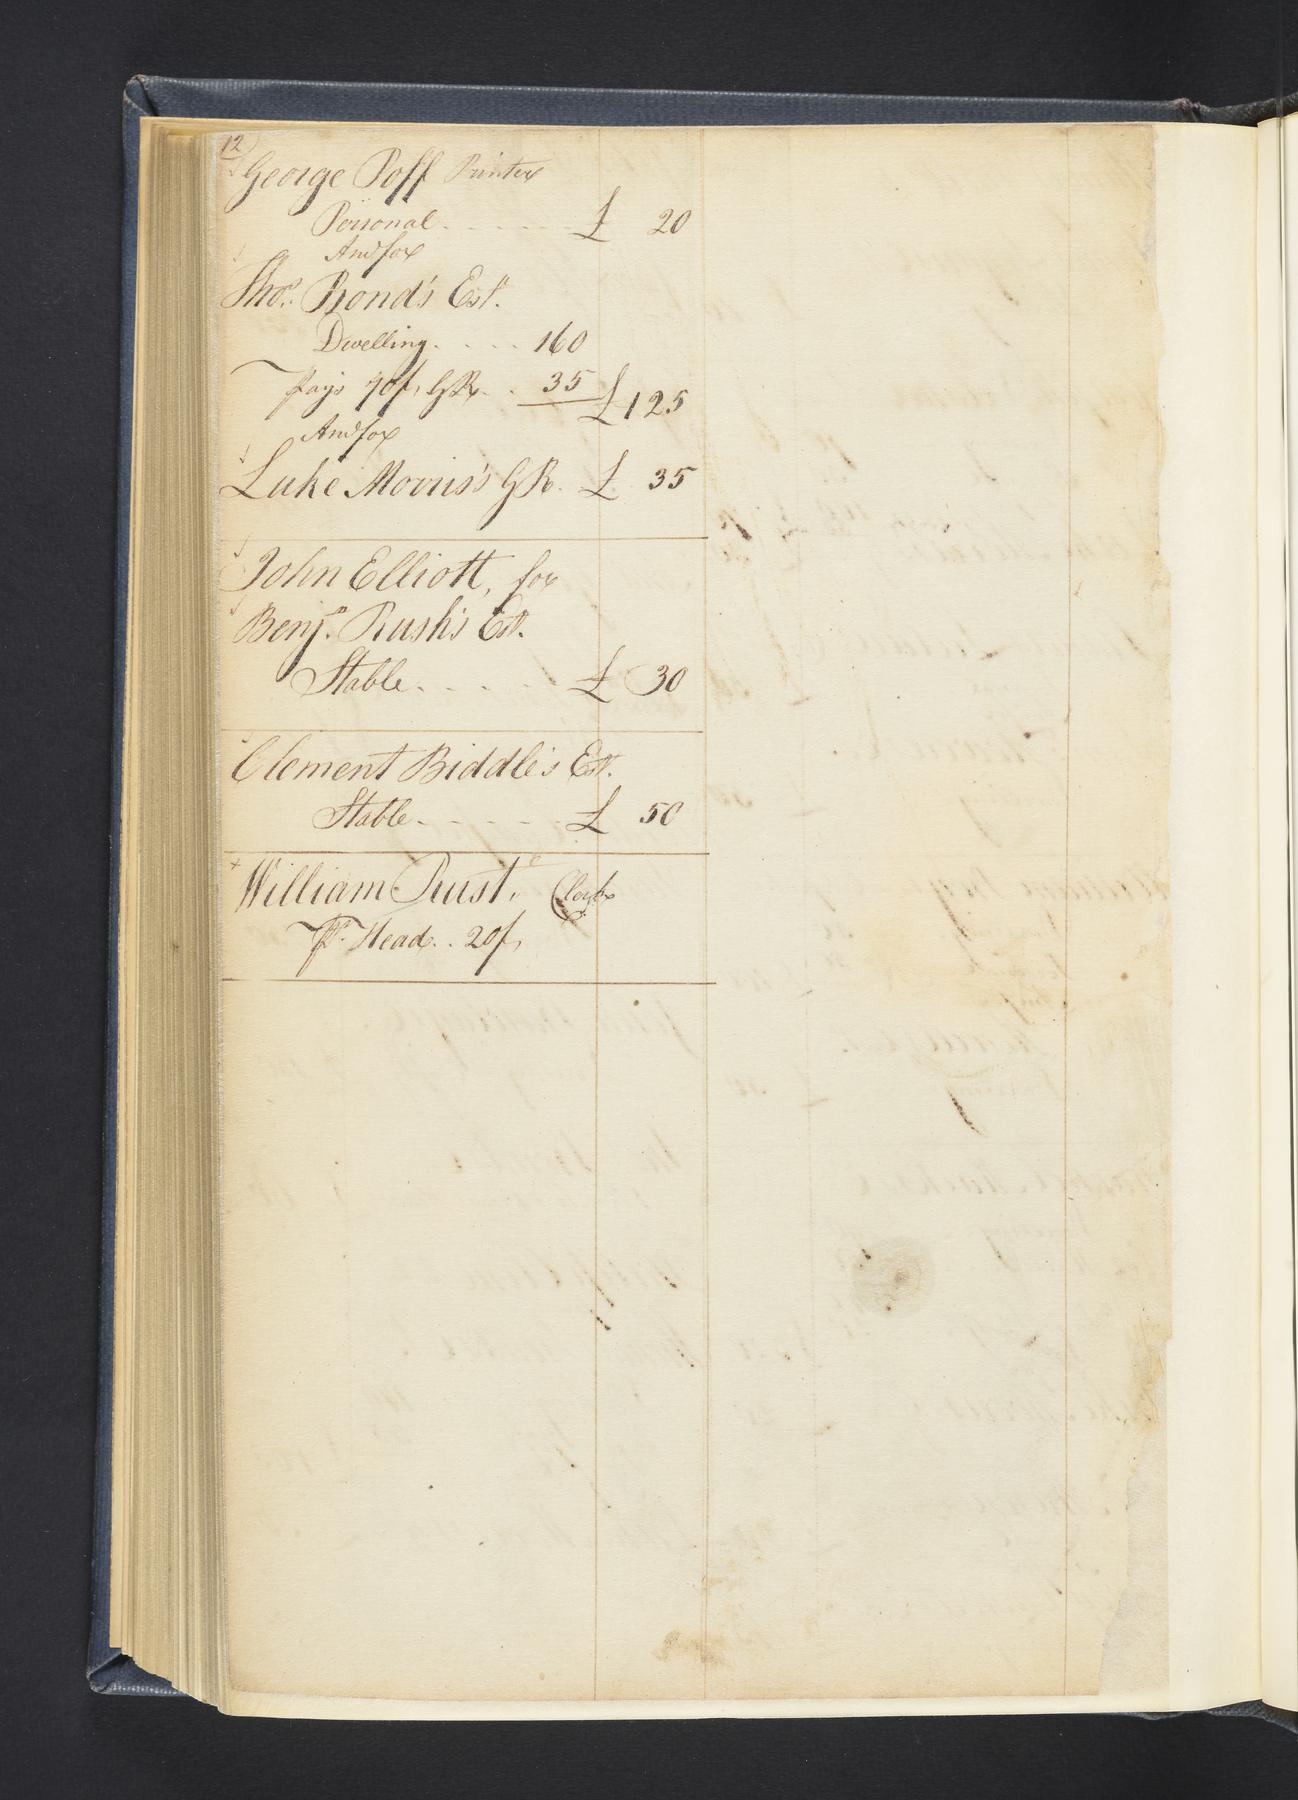 12
George Poff Printer
Personal - - - - - - £ 20
And for
Thos. Bond's Est.
Dwelling - - - - 160
Pays 70/, GR - - 35 £125
And for
Luke Morris's GR - £ 35
John Elliott, for
Benjn. Rush's Est.
Stable - - - - - £ 30
Clement Biddle's Est.
Stable - - - - - - £ 50
+ William Clerk
Pr. Head - - 20/,